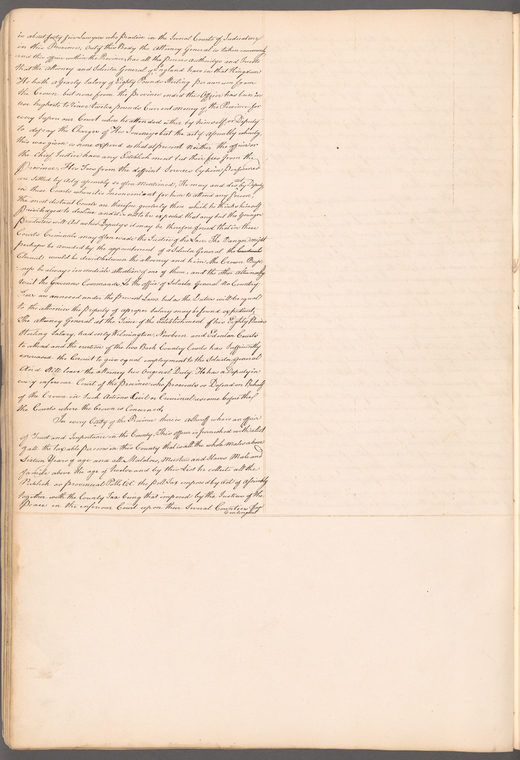 is about forty five Lawyers who practice in the Several Courts of Judicatory
in this Province, out of this Body the Attorney General is taken
and this officer within the Province has all the powers authoritys and Trusts
that the Attorney and Solicitor General of England have in that Kingdom
He hath a Yearly Salary of Eighty Pounds Sterling per annum from
the Crown but none from the Province indeed this Officer has been in
two Instances Twelve pounds Current Money of the Province for
every Superior Court when he attended either by himself or Deputy
to defray the Charges of His Journeys but the act of Assembly whereby
this was given is now expired so that at present neither the officer or
the Chief Justice have any Establishment but their fees from the
Province. His Fees from the different Services by him Performed
are settled by act of Assembly so often Mentioned, He may and does by Deputy
in those Courts where it is Inconvenient for him to attend any Person,
The most distant Courts are therefore generally those which he thinks himself
priviledged to decline and it is not to be expected that any but the Younger
Practisers will Act as his Deputys it may be therefore feared that in these
Courts Criminals may often evade the Justice of the Law. The Danger might
perhaps be avoided by the appointment of a Solicitor General the
Circuits would be divided between the attorney and him, the Crown Busi-
ness be always immediate attention of one of them, and the other Alternately
wait the Governors Commands. To the office of Solicitor General the Country
Fees are annexed under the Present Laws but as the Duties will be equal
to the attornies the property of a proper Salary may be found expedient,
The Attorney General at the Time of the Establishment of his Eighty Pounds
Sterling Salary, had only Wilmington, Newbern and Edenton Courts
to attend and the creation of the two Back Country Courts has Sufficiently
increased the Circuit to give equal employment to the Solicitor General
And Still leave the attorney his Original Duty. He has a Deputy in
every inferior Court of the Province who prosecutes or Defends on Behalf
of the Crown in Such Actions Civil or Criminal as come before them
the Courts where the Crown is Concerned,
In every County of the Province there is a Sheriff where an office
of Trust and Importance in the County, This officer is furnished with a list
of all the taxable persons in this County that is all the white Males above
Sixteen Years of age and all Mulattoes, Mustees and Slaves Male and
Female above the age of Twelve and by this List he collects all the
Publick or Provincial Poll tax the poll tax imposed by Act of Assembly
together with the County Tax being that imposed by the Justices of the
Peace in the inferiour Court upon their Several Countries for
Contingent